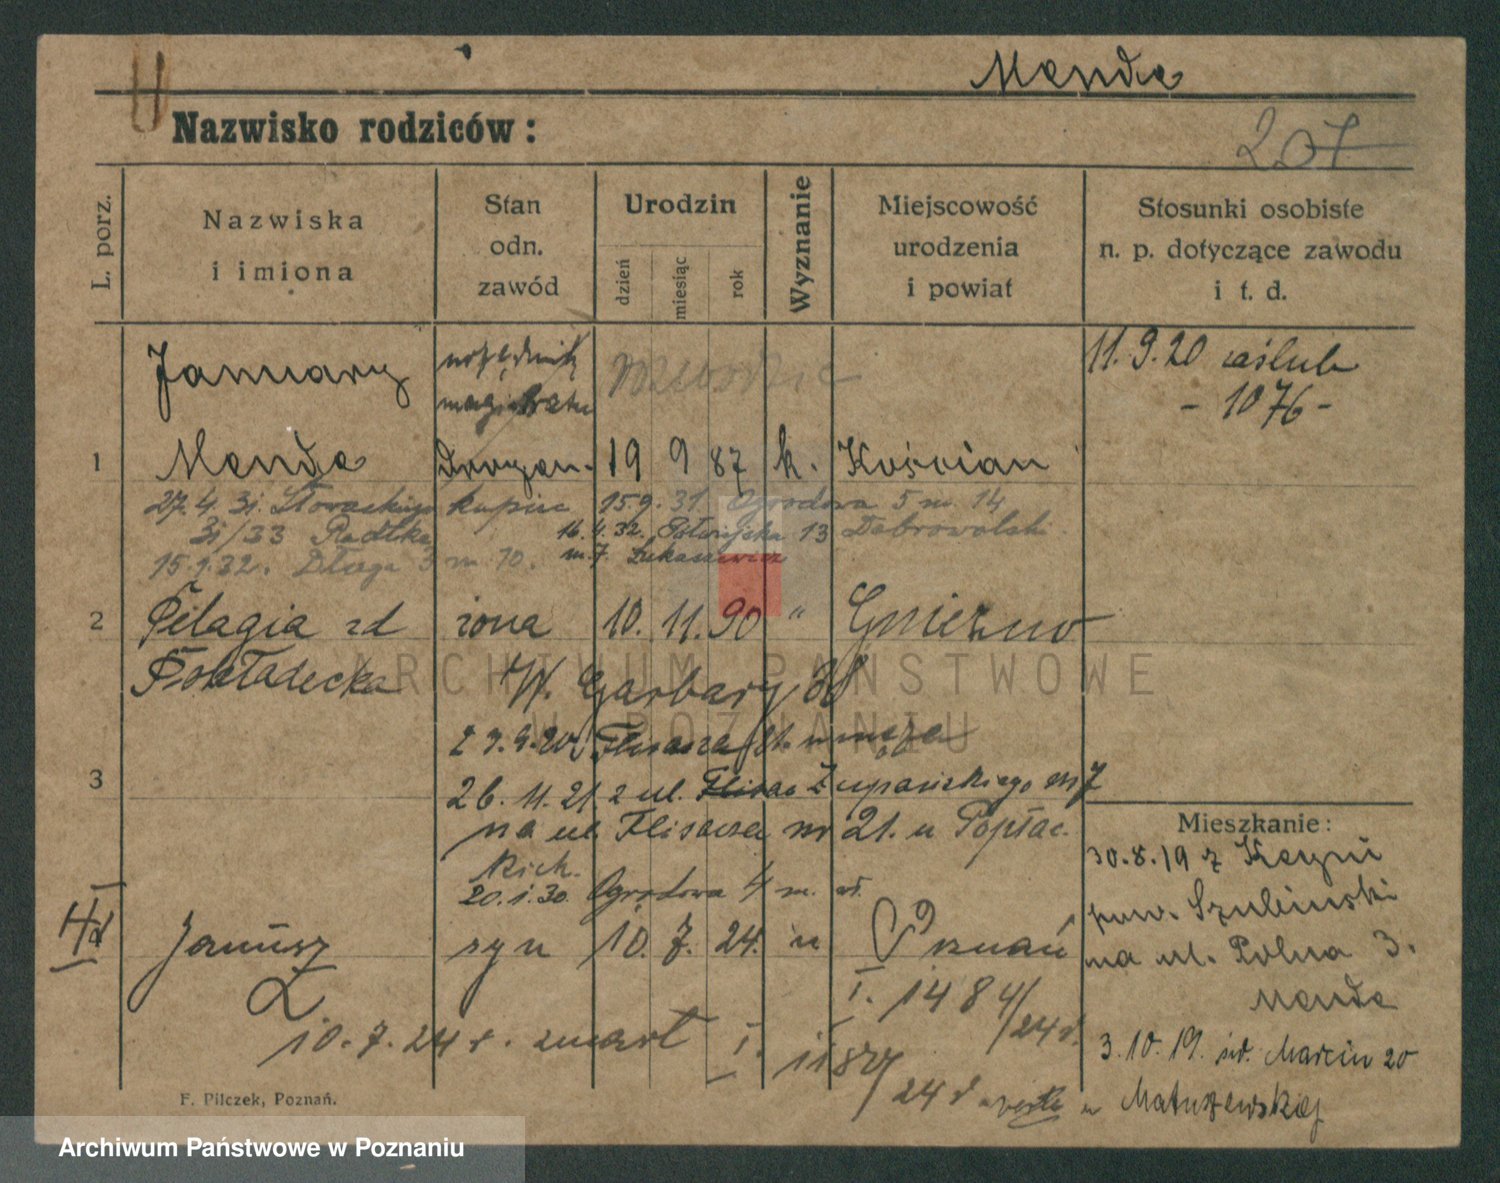 Menda
Nazwisko rodziców:
207
L. porz.
Nazwiska
i imiona
Stan
odn.
zawód
Urodzin
dzień
miesiąc
rok
Wyznanie
Miejscowość
urodzenia
i powiat
Stosunki osobiste
n. p. dotyczące zawodu
i t. d.
January
urzędnik
magistratu
11.9.20 zaślub
- 1076 -
1
Menda
19 9 87 k. Kościan
27.4.31. Słowackiego
kupiec 15.9.31. Ogrodowa 5 m. 14
31/33
16.4.32. 13 Dabrowolski
15.1.32. Długa 3 m 10. m. 7. Łukaszewicz
2
Pelagia zd żona 10. 11. 90 " Gniezno
W. Garbary 38
ARCHIWUM PAŃSTWOWE
W POZNANIU
Flisacza 21. u męża
3
26.11.21 z ul. Flisac Żupańskiego m 7
na ul Flisacza nr 21. u
20.1.30. Ogrodowa 4 m.
Janusz syn 10. 7. 24. Poznań
I. 1484/24 r.
10.7.24 r. zmarł I. 1187/24 r
Mieszkanie:
30.8.19 z Kcyni
pow. Szubiński
na ul. Polna 3.
Menda
3.10.19. św. Marcin 20
u Matuszewskiej
F. Pilczek, Poznań.
Archiwum Państwowe w Poznaniu